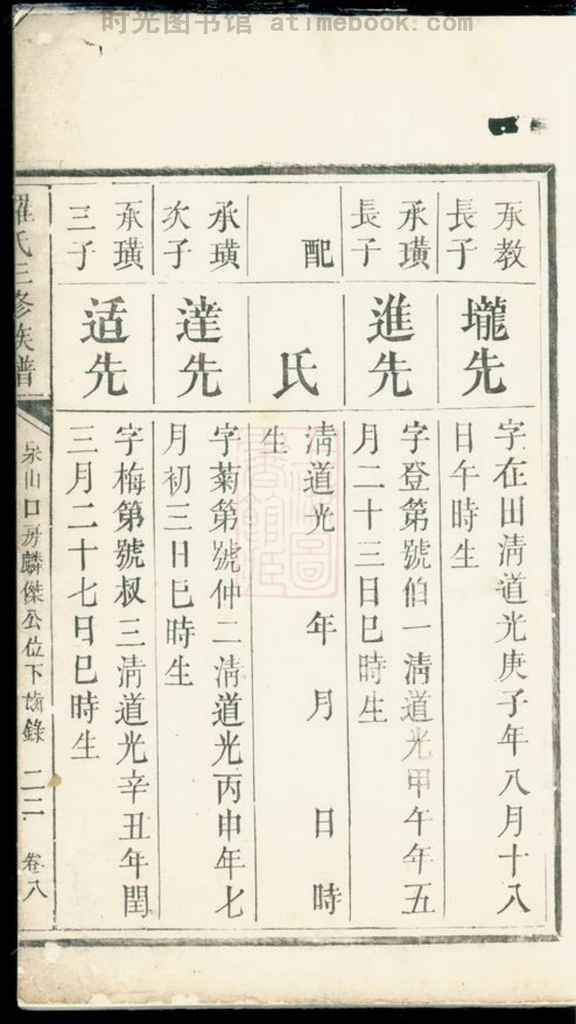 时光图书馆 atimebook.com
承教
長子
壠先
字在田清道光庚子年八月十八
日午時生
承璜
長子
進先
字登第號伯一清道光甲午年五
月二十三日巳時生
配
氏
清道光 年 月 日 時
生
承璜
次子
達先
字菊第號仲二清道光丙申年七
月初三日巳時生
承璜
三子
适先
字梅第號叔三清道光辛丑年閏
三月二十七日巳時生
羅氏三修族譜
泉山口房麟傑公位下 錄 二二 卷八